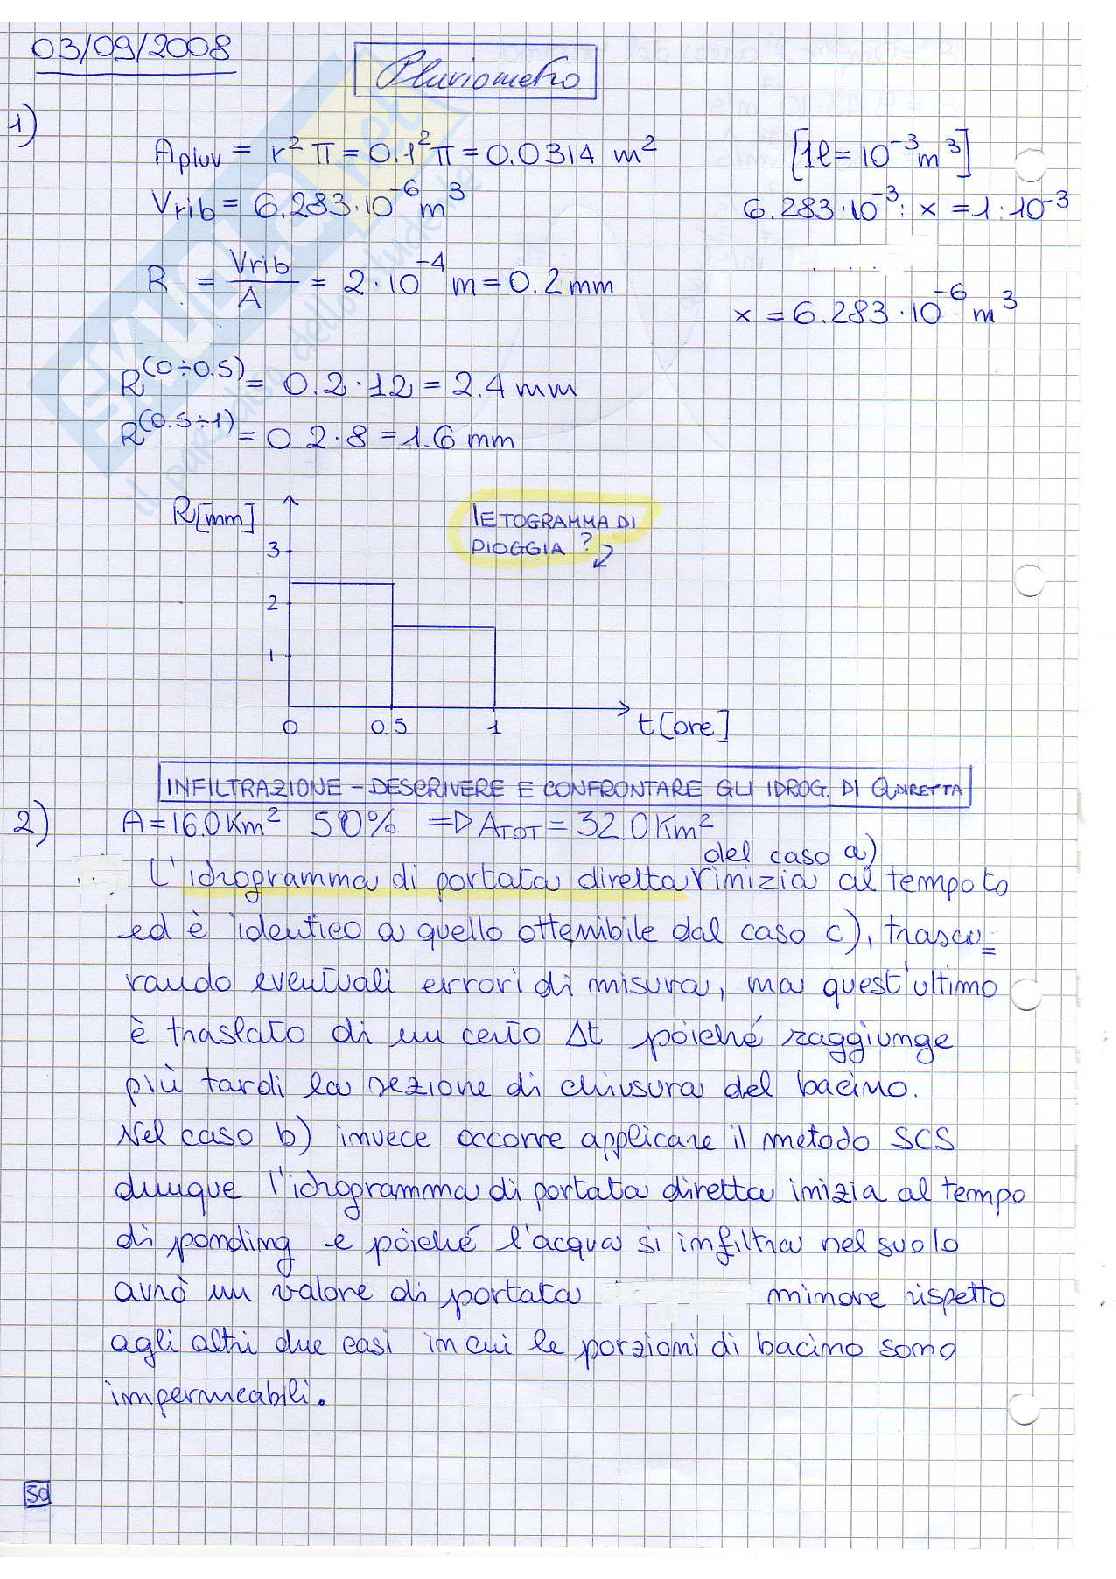 03/09/2008
Pluviometro
1)
Apluv = r² π = 0.1² π = 0.0314 m²
[1l = 10⁻³ m³]
Vrib = 6.283·10⁻⁶ m³
6.283·10⁻³ : x = 1 : 10⁻³
R = Vrib / A = 2·10⁻⁴ m = 0.2 mm
x = 6.283·10⁻⁶ m³
R^(0÷0.5) = 0.2·12 = 2.4 mm
R^(0.5÷1) = 0.2·8 = 1.6 mm
R[mm]
IETOGRAMMA DI
PIOGGIA ?
3
2
1
0 0.5 1
t[ore]
INFILTRAZIONE - DESCRIVERE E CONFRONTARE GLI IDROG. DI Q DIRETTA
2) A = 16.0 Km² 50% => ATOT = 32.0 Km²
del caso a)
L'idrogramma di portata diretta inizia al tempo to
ed è identico a quello ottenibile dal caso c), trascu=
rando eventuali errori di misura, ma quest'ultimo
è traslato di un certo Δt poiché raggiunge
più tardi la sezione di chiusura del bacino.
Nel caso b) invece occorre applicare il metodo SCS
dunque l'idrogramma di portata diretta inizia al tempo
di ponding e poiché l'acqua si infiltra nel suolo
avrò un valore di portata minore rispetto
agli altri due casi in cui le porzioni di bacino sono
impermeabili.